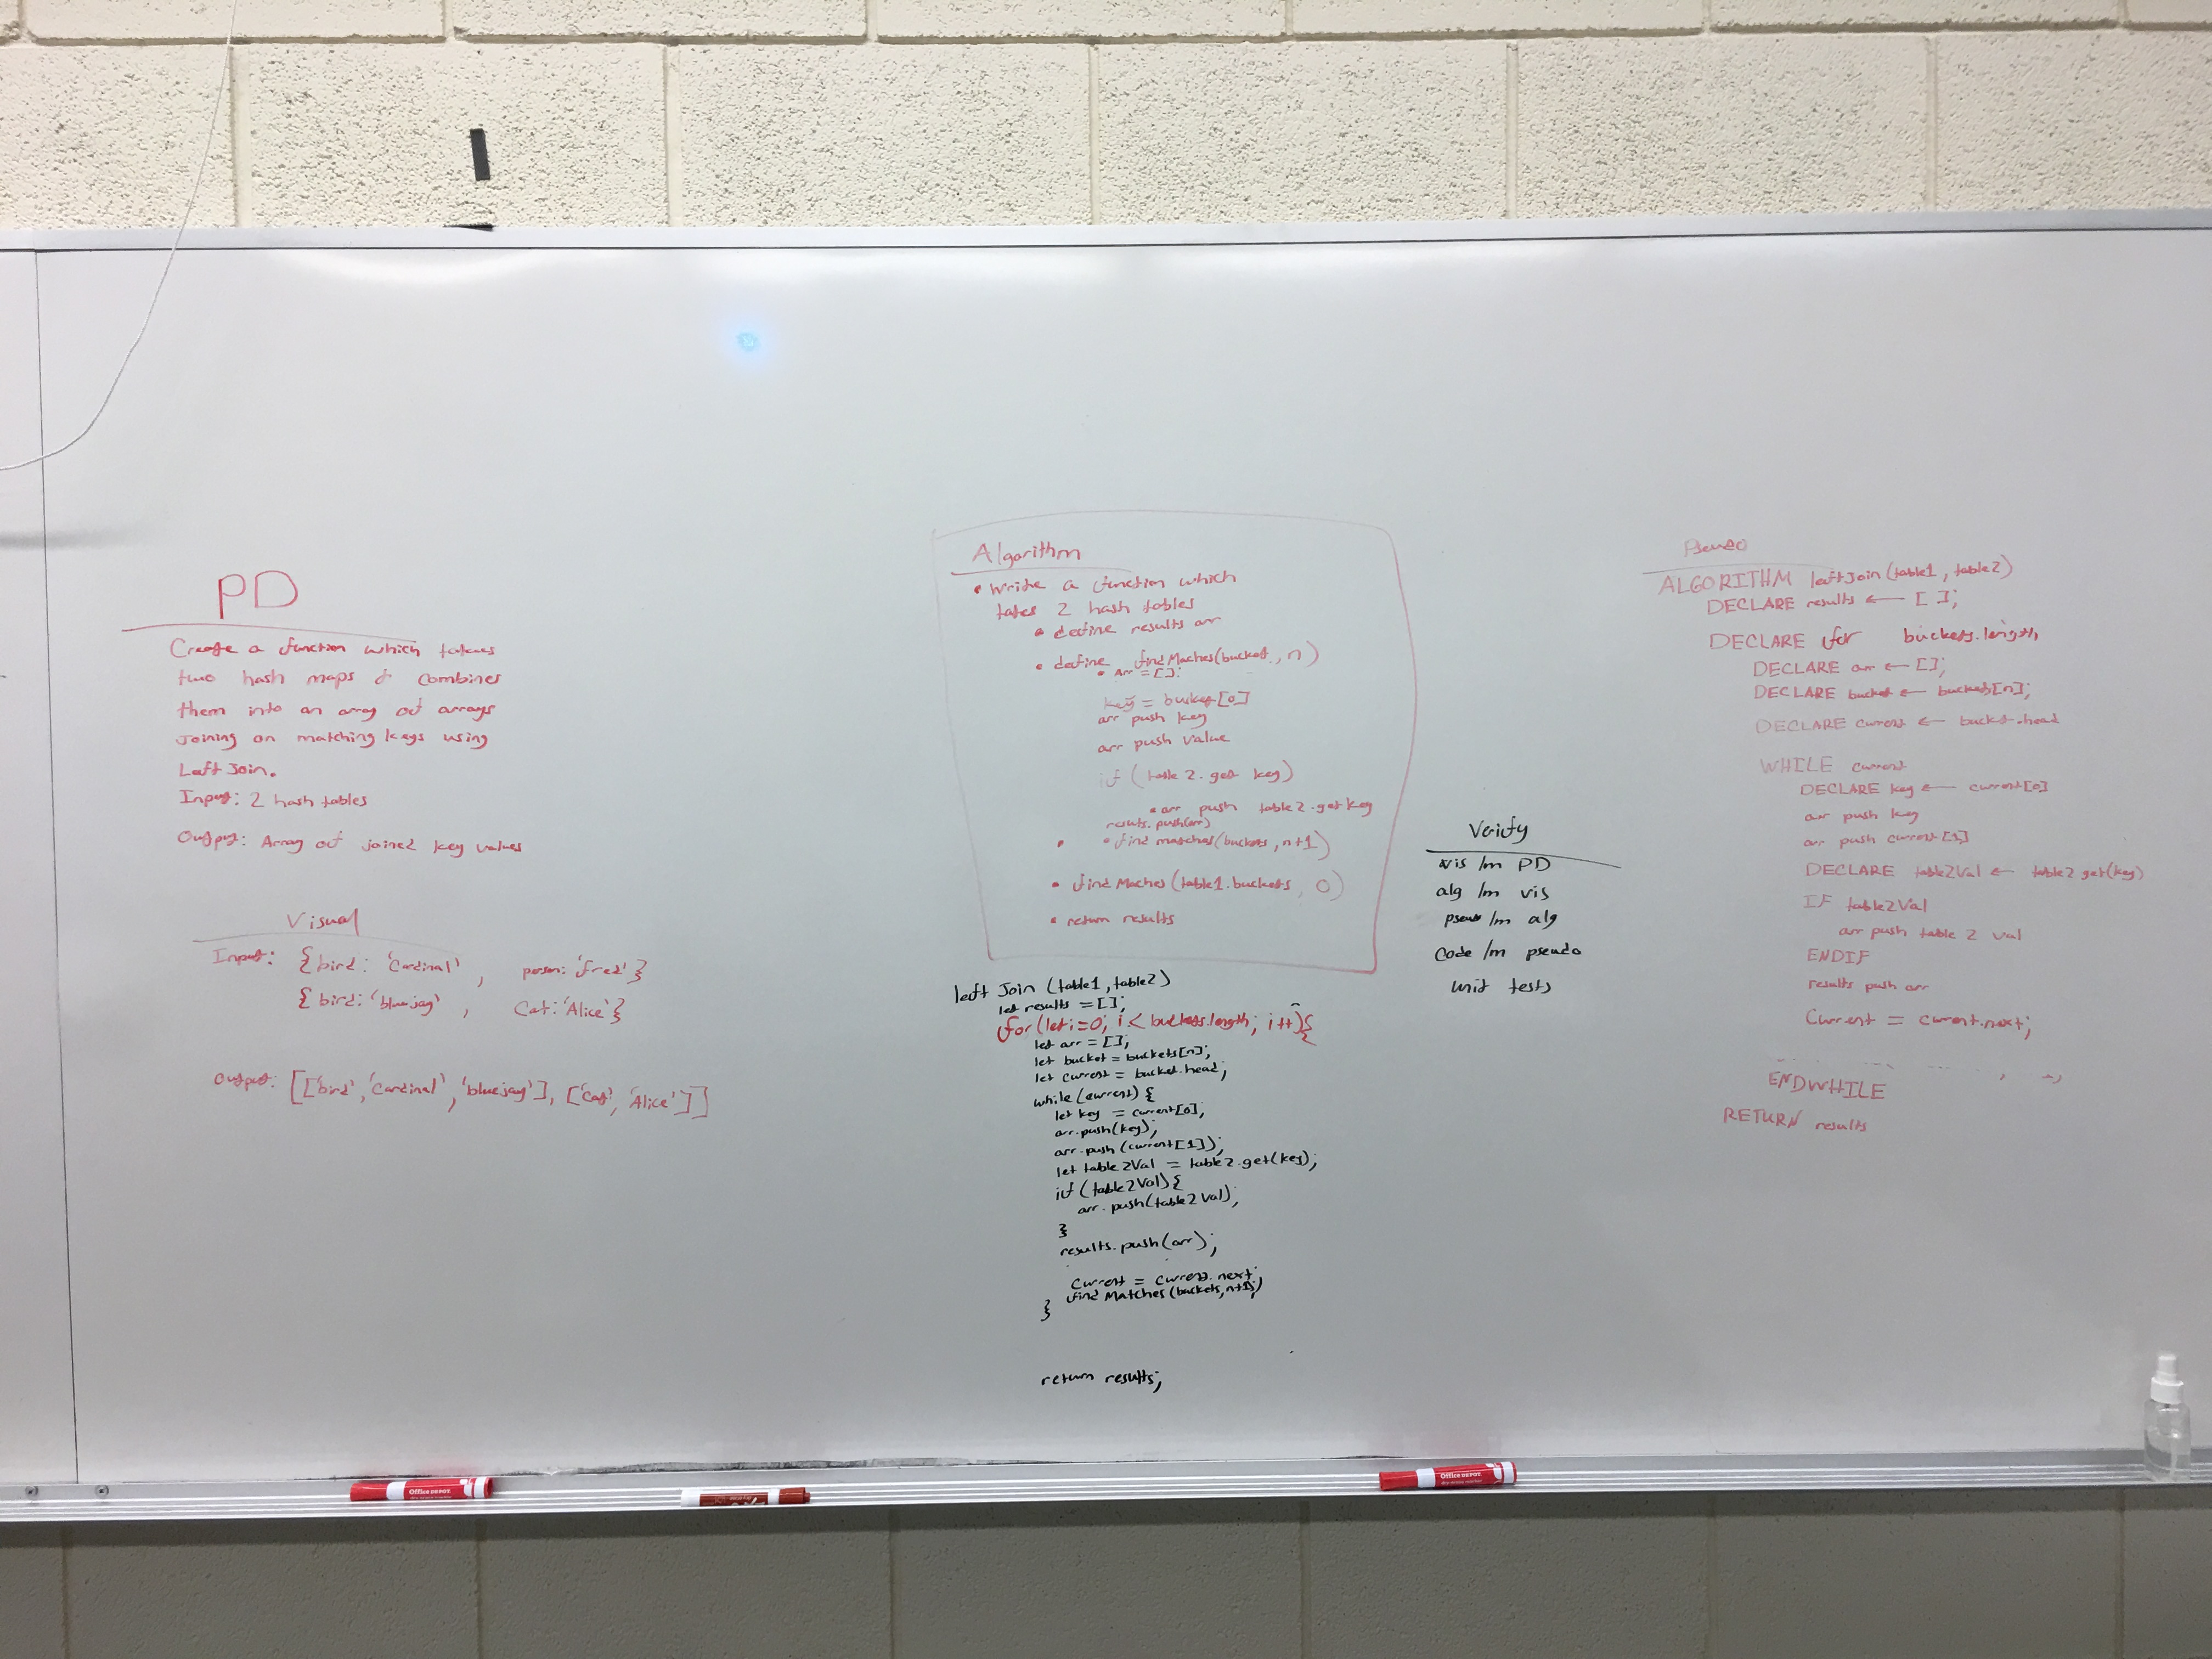 PD
Create a function which takes
two hash maps & combines
them into an array of arrays
Joining on matching keys using
Left Join.
Input: 2 hash tables
Output: Array of joined key values
Visual
Input: {bird: 'Cardinal', person: 'fred'}
{bird: 'bluejay', Cat: 'Alice'}
Output: [['bird', 'Cardinal', 'bluejay'], ['Cat', 'Alice']]
Algorithm
• Write a function which
takes 2 hash tables
• define results arr
• define findMaches(bucket, n)
• Arr = [];
key = bucket[0]
arr push key
arr push value
if (table 2. get key)
• arr push table2.get key
results.push(arr)
• • find matches(buckets, n+1)
• find Maches(table1.buckets, 0)
• return results
left Join (table1, table2)
let results = [];
for(let i=0; i < buckets.length; i++){
let arr = [];
let bucket = buckets[n];
let current = bucket.head;
while (current) {
let key = current[0];
arr.push(key);
arr.push(current[1]);
let table2Val = table2.get(key);
if (table2Val){
arr.push(table2Val);
}
results.push(arr);
Current = current.next;
find Matches(buckets, n+1);
}
return results;
Verify
vis /m PD
alg /m vis
pseuo /m alg
Code /m pseudo
unit tests
Pseudo
ALGORITHM leftJoin(table1, table2)
DECLARE results ← [ ];
DECLARE for buckets.length
DECLARE arr ← [];
DECLARE bucket ← buckets[n];
DECLARE current ← bucket.head
WHILE current
DECLARE key ← current[0]
arr push key
arr push current[1]
DECLARE table2Val ← table2 get(key)
IF table2Val
arr push table 2 val
ENDIF
results push arr
Current = current.next;
ENDWHILE
RETURN results
Office DEPOT
Office DEPOT